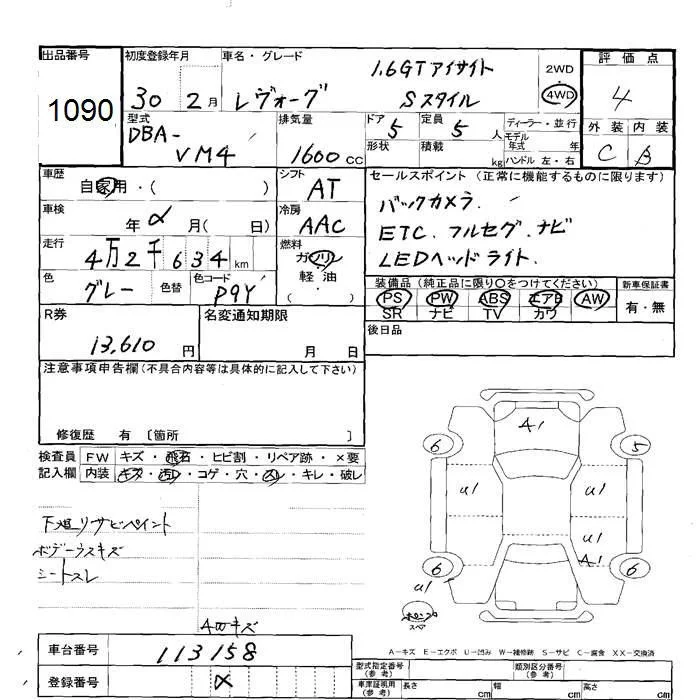 出品番号 1090
初度登録年月 30 2月
車名・グレード レヴォーグ
1.6GTアイサイト
Sスタイル
2WD
4WD
評価点 4
外装 C 内装 B
型式 DBA-
VM4
排気量 1600 cc
ドア 5
定員 5 人
形状
積載 kg
ディーラー・並行
モデル年式 年
ハンドル 左・右
車歴 自家用・( )
車検 年 月( 日)
走行 4万2千634 km
色 グレー 色替
色コード P9Y
シフト AT
冷房 AAC
燃料 ガソリン
軽油
( )
セールスポイント (正常に機能するものに限ります)
バックカメラ.
ETC. フルセグ.ナビ
LEDヘッドライト.
装備品(純正品に限り○をつけてください)
PS PW ABS エアB AW
SR ナビ TV カワ
新車保証書
有・無
後日品
R券 13,610 円
名変通知期限
月 日
注意事項申告欄(不具合内容等は具体的に記入して下さい)
修復歴 有 〔箇所 〕
検査員 FW キズ・飛石・ヒビ割・リペア跡・×要
記入欄 内装 キズ・汚れ・コゲ・穴・スレ・キレ・破レ
下廻リサビペイント
ボデーウスキズ
シートスレ
A四キズ
A1
6
5
U1
U1
U1
A1
6
6
U1
スペア
A−キズ E−エクボ U−凹み W−補修跡 S−サビ C−腐食 XX−交換済
車台番号 113158
登録番号
型式指定番号(参考)
類別区分番号(参考)
車庫証明用(参考) 長さ cm 幅 cm 高さ cm